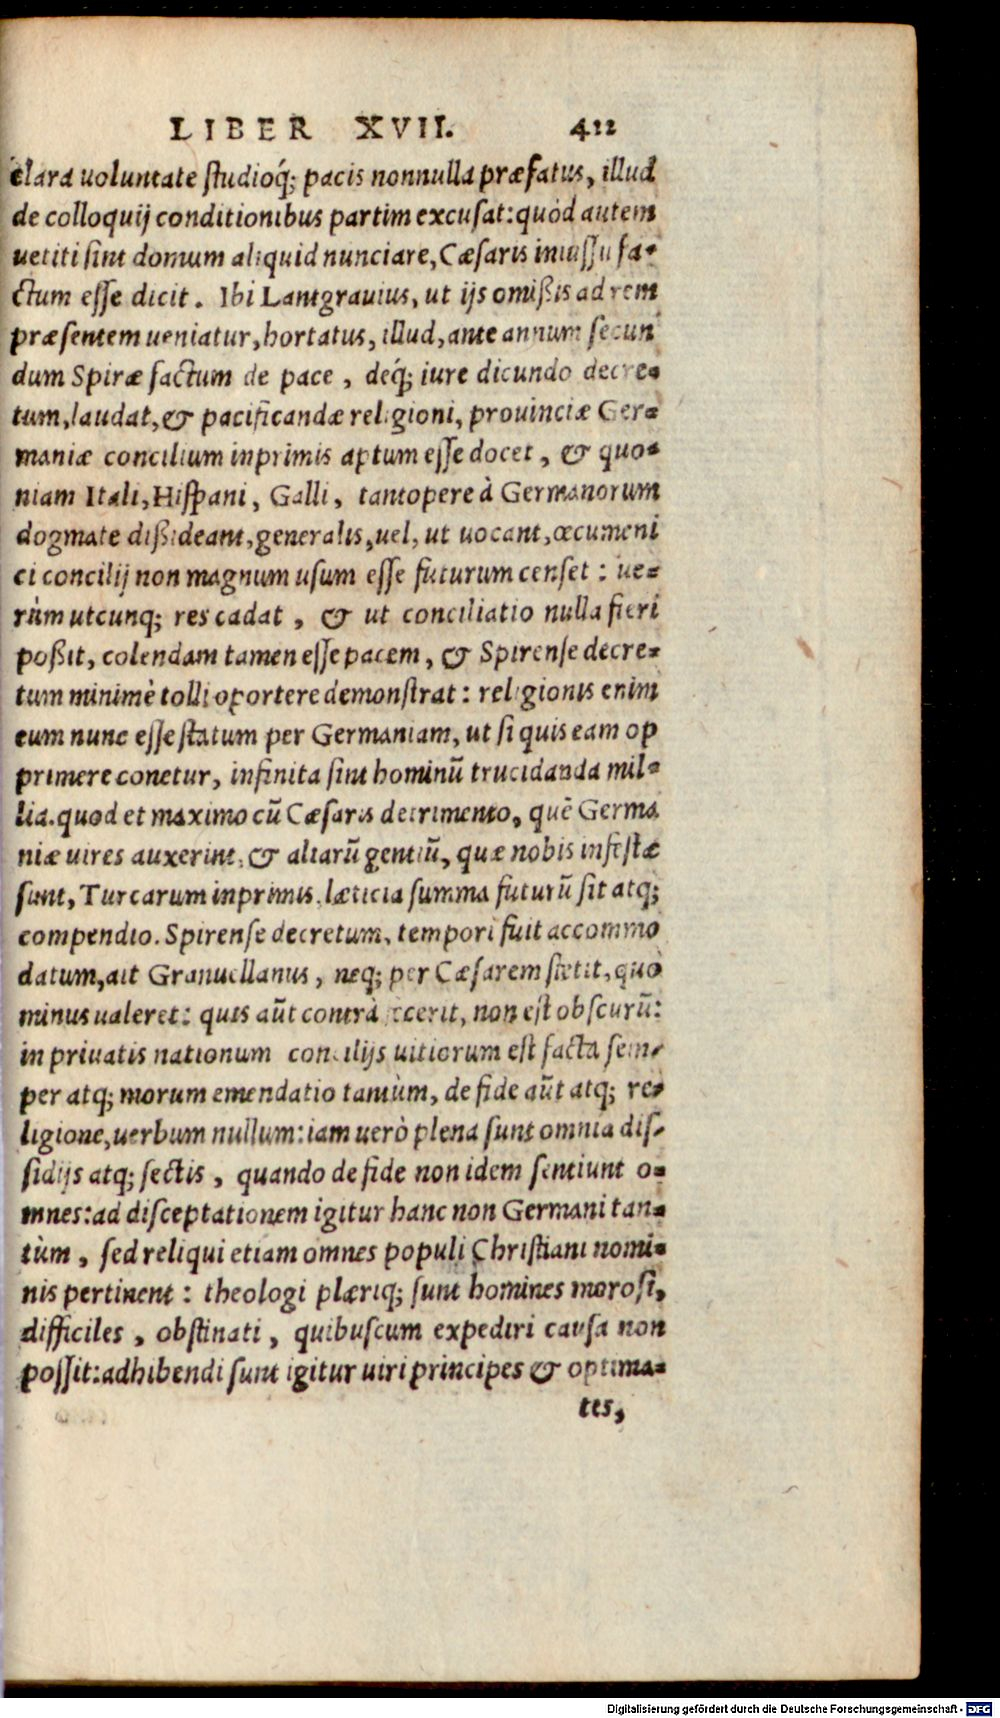 LIBER XVII. 422
clara uoluntate studioq́; pacis nonnulla præfatus, illud
de colloquij conditionibus partim excusat: quòd autem
uetiti sint domum aliquid nunciare, Cæsaris iniussu fa-
ctum esse dicit. Ibi Lantgrauius, ut ijs omißis ad rem
præsentem ueniatur, hortatus, illud, ante annum secun
dum Spiræ factum de pace, deq́; iure dicundo decre-
tum, laudat, & pacificandæ religioni, prouinciæ Ger-
maniæ concilium inprimis aptum esse docet, & quo-
niam Itali, Hispani, Galli, tantopere à Germanorum
dogmate dißideant, generalis, uel, ut uocant, œcumeni
ci concilij non magnum usum esse futurum censet: ue-
rùm utcunq; res cadat, & ut conciliatio nulla fieri
poßit, colendam tamen esse pacem, & Spirense decre-
tum minimè tolli oportere demonstrat: religionis enim
eum nunc esse statum per Germaniam, ut si quis eam op
primere conetur, infinita sint hominū trucidanda mil-
lia. quod et maximo cū Cæsaris detrimento, quē Germa
niæ uires auxerint, & aliarū gentiū, quæ nobis infestæ
sunt, Turcarum inprimis, læticia summa futurū sit atq;
compendio. Spirense decretum, tempori fuit accommo
datum, ait Granuellanus, neq; per Cæsarem stetit, quò
minus ualeret: quis aūt contrà fecerit, non est obscurū:
in priuatis nationum concilijs uitiorum est facta sem-
per atq; morum emendatio tantùm, de fide aūt atq; re-
ligione, uerbum nullum: iam uerò plena sunt omnia dis-
sidijs atq; sectis, quando de fide non idem sentiunt o-
mnes: ad disceptationem igitur hanc non Germani tan-
tùm, sed reliqui etiam omnes populi Christiani nomi-
nis pertinent: theologi plæriq; sunt homines morosi,
difficiles, obstinati, quibuscum expediri causa non
possit: adhibendi sunt igitur uiri principes & optima-
tes,
Digitalisierung gefördert durch die Deutsche Forschungsgemeinschaft - DFG